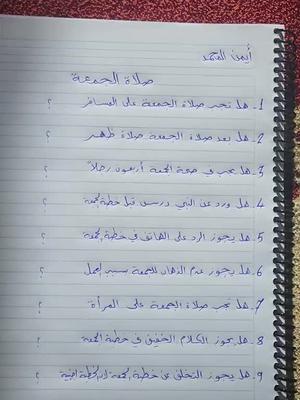 أيمن المحمد
صلاة الجمعة
1- هل تجب صلاة الجمعة على المسافر ؟
2- هل بعد صلاة الجمعة صلاة ظهر ؟
3- هل يجب في صحة الجمعة أربعون رجلاً ؟
4- هل ورد عن النبي درس قبل خطبة الجمعة ؟
5- هل يجوز الرد على الهاتف في خطبة الجمعة ؟
6- هل يجوز عدم الذهاب للجمعة بسبب العمل ؟
7- هل تجب صلاة الجمعة على المرأة ؟
8- هل يجوز الكلام الخفيف في خطبة الجمعة ؟
9- هل يجوز التخلف عن خطبة الجمعة لأن الخطبة ؟